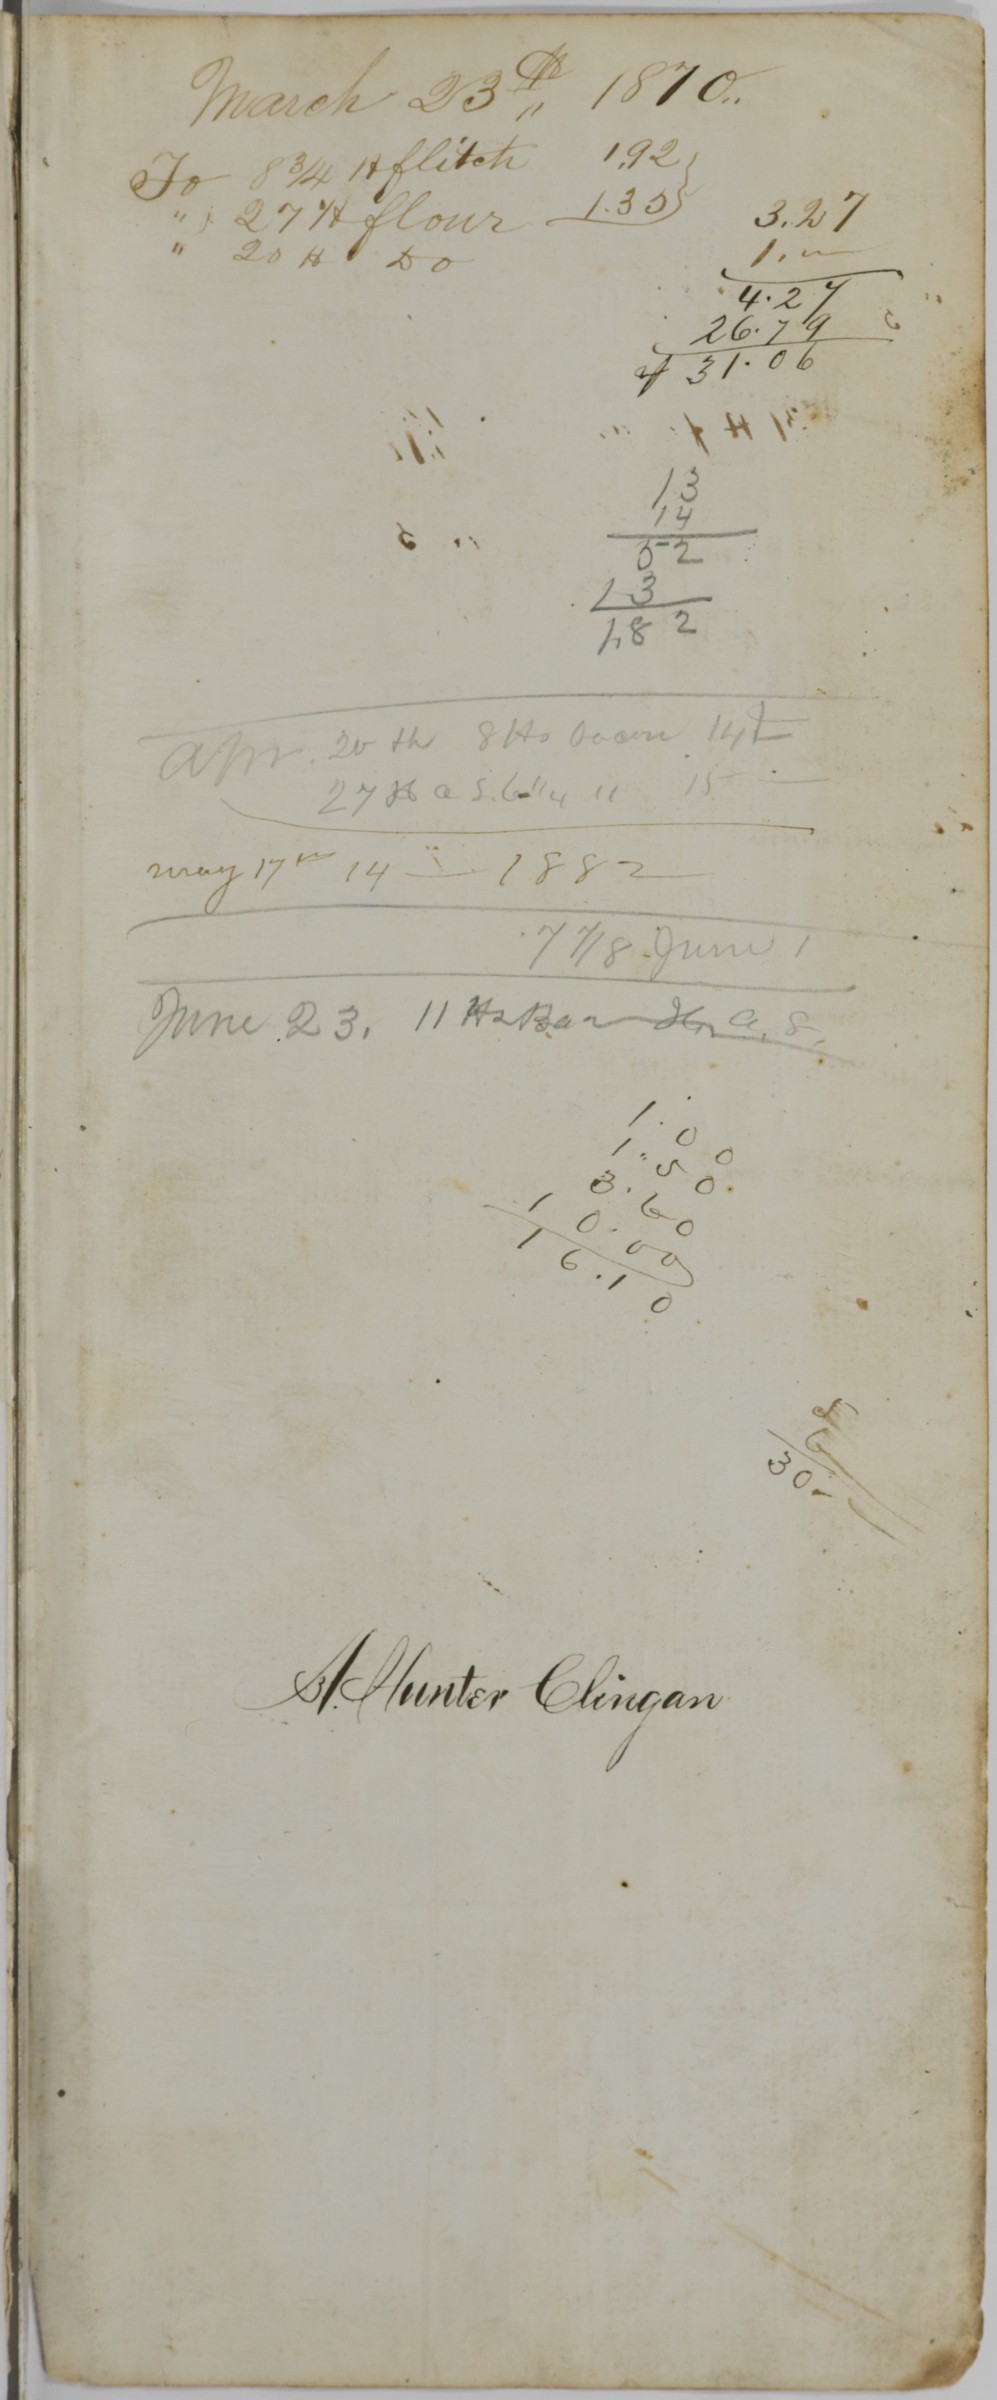 March 23th 1870..
To 8 3/4 lb flitch 1.92
" 27 lb flour 1.35 3.27
" 20 lb Do 1. —
4.27
26.79
31.06
13
14
52
13
1,82
Apr. 20th 8 lbs bacon 14
27 lb a S. 6 1/4 " 15 —
may 17th 14 — 1882
7 7/8 June 1
June 23. 11 lbs a. S.
1.00
1"50
3.60
10.00
16.10
5
6
30.
A. Hunter Clingan